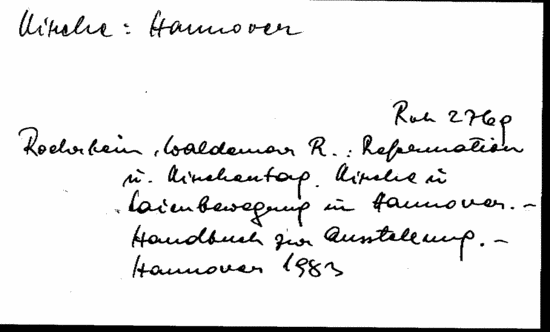 Kirche: Hannover
Roh 27Hg
Röhrbein, Waldemar R.: Reformation
u. Kirchentag. Kirche u
Laienbewegung in Hannover. –
Handbuch zur Ausstellung. –
Hannover 1983